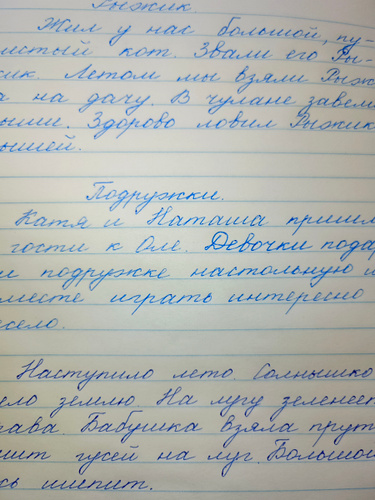 Рыжик.
Жил у нас большой, пу-
истый кот. Звали его Ры-
жик. Летом мы взяли Рыж
а на дачу. В чулане завел
ыши. Здорово ловил Рыжик
ышей.
Подружки.
Катя и Наташа пришл
гости к Оле. Девочки подар
и подружке настольную и
месте играть интересно
есело.
Наступило лето. Солнышко
ело землю. На лугу зеленеет
рава. Бабушка взяла прут
шит гусей на луг. Большой
сь шипит.